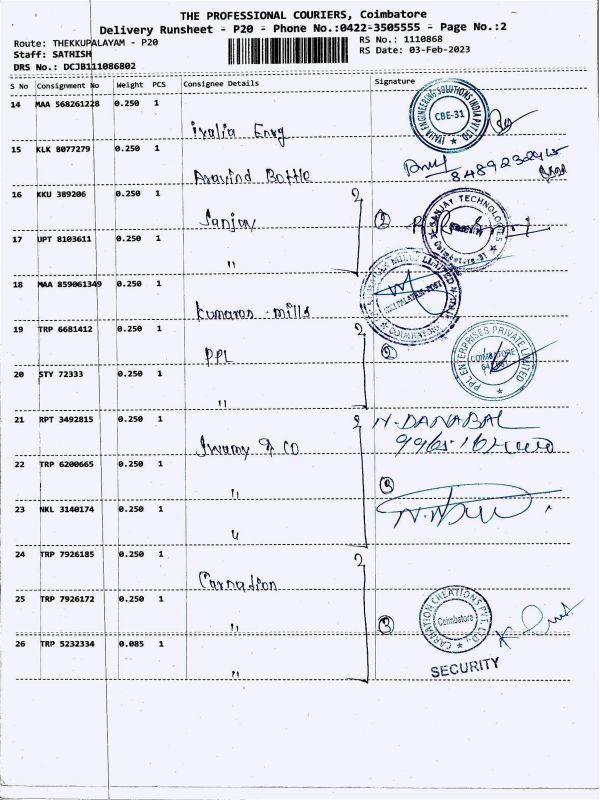 THE PROFESSIONAL COURIERS, Coimbatore
Delivery Runsheet - P20 - Phone No.:0422-3505555 - Page No.:2
Route: THEKKUPALAYAM - P20
RS No.: 1110868
Staff: SATHISH
RS Date: 03-Feb-2023
DRS No.: DCJB111086802
S No Consignment No Weight PCS Consignee Details Signature
14 MAA 568261228 0.250 1
IVALIA ENGINEERING SOLUTIONS INDIA PVT LTD
CBE-31
ivalia Eng
15 KLK 8077279 0.250 1
Aravind Bottle
16 KKU 389206 0.250 1
Sanjay
2
SANJAY TECHNOLOGIES
Coimbatore 31
17 UPT 8103611 0.250 1
"
18 MAA 859061349 0.250 1
Kumaras - mills
COIMBATORE
19 TRP 6681412 0.250 1
PPL
2
PPL ENTERPRISES PRIVATE LIMITED
COIMBATORE
20 STY 72333 0.250 1
"
21 RPT 3492815 0.250 1
N. DANABAL
Swamy & Co
22 TRP 6200665 0.250 1
"
3
23 NKL 3140174 0.250 1
"
24 TRP 7926185 0.250 1
Carnation
25 TRP 7926172 0.250 1
"
3
CARNATION CREATIONS PVT. LTD.,
Coimbatore
26 TRP 5232334 0.085 1
"
SECURITY